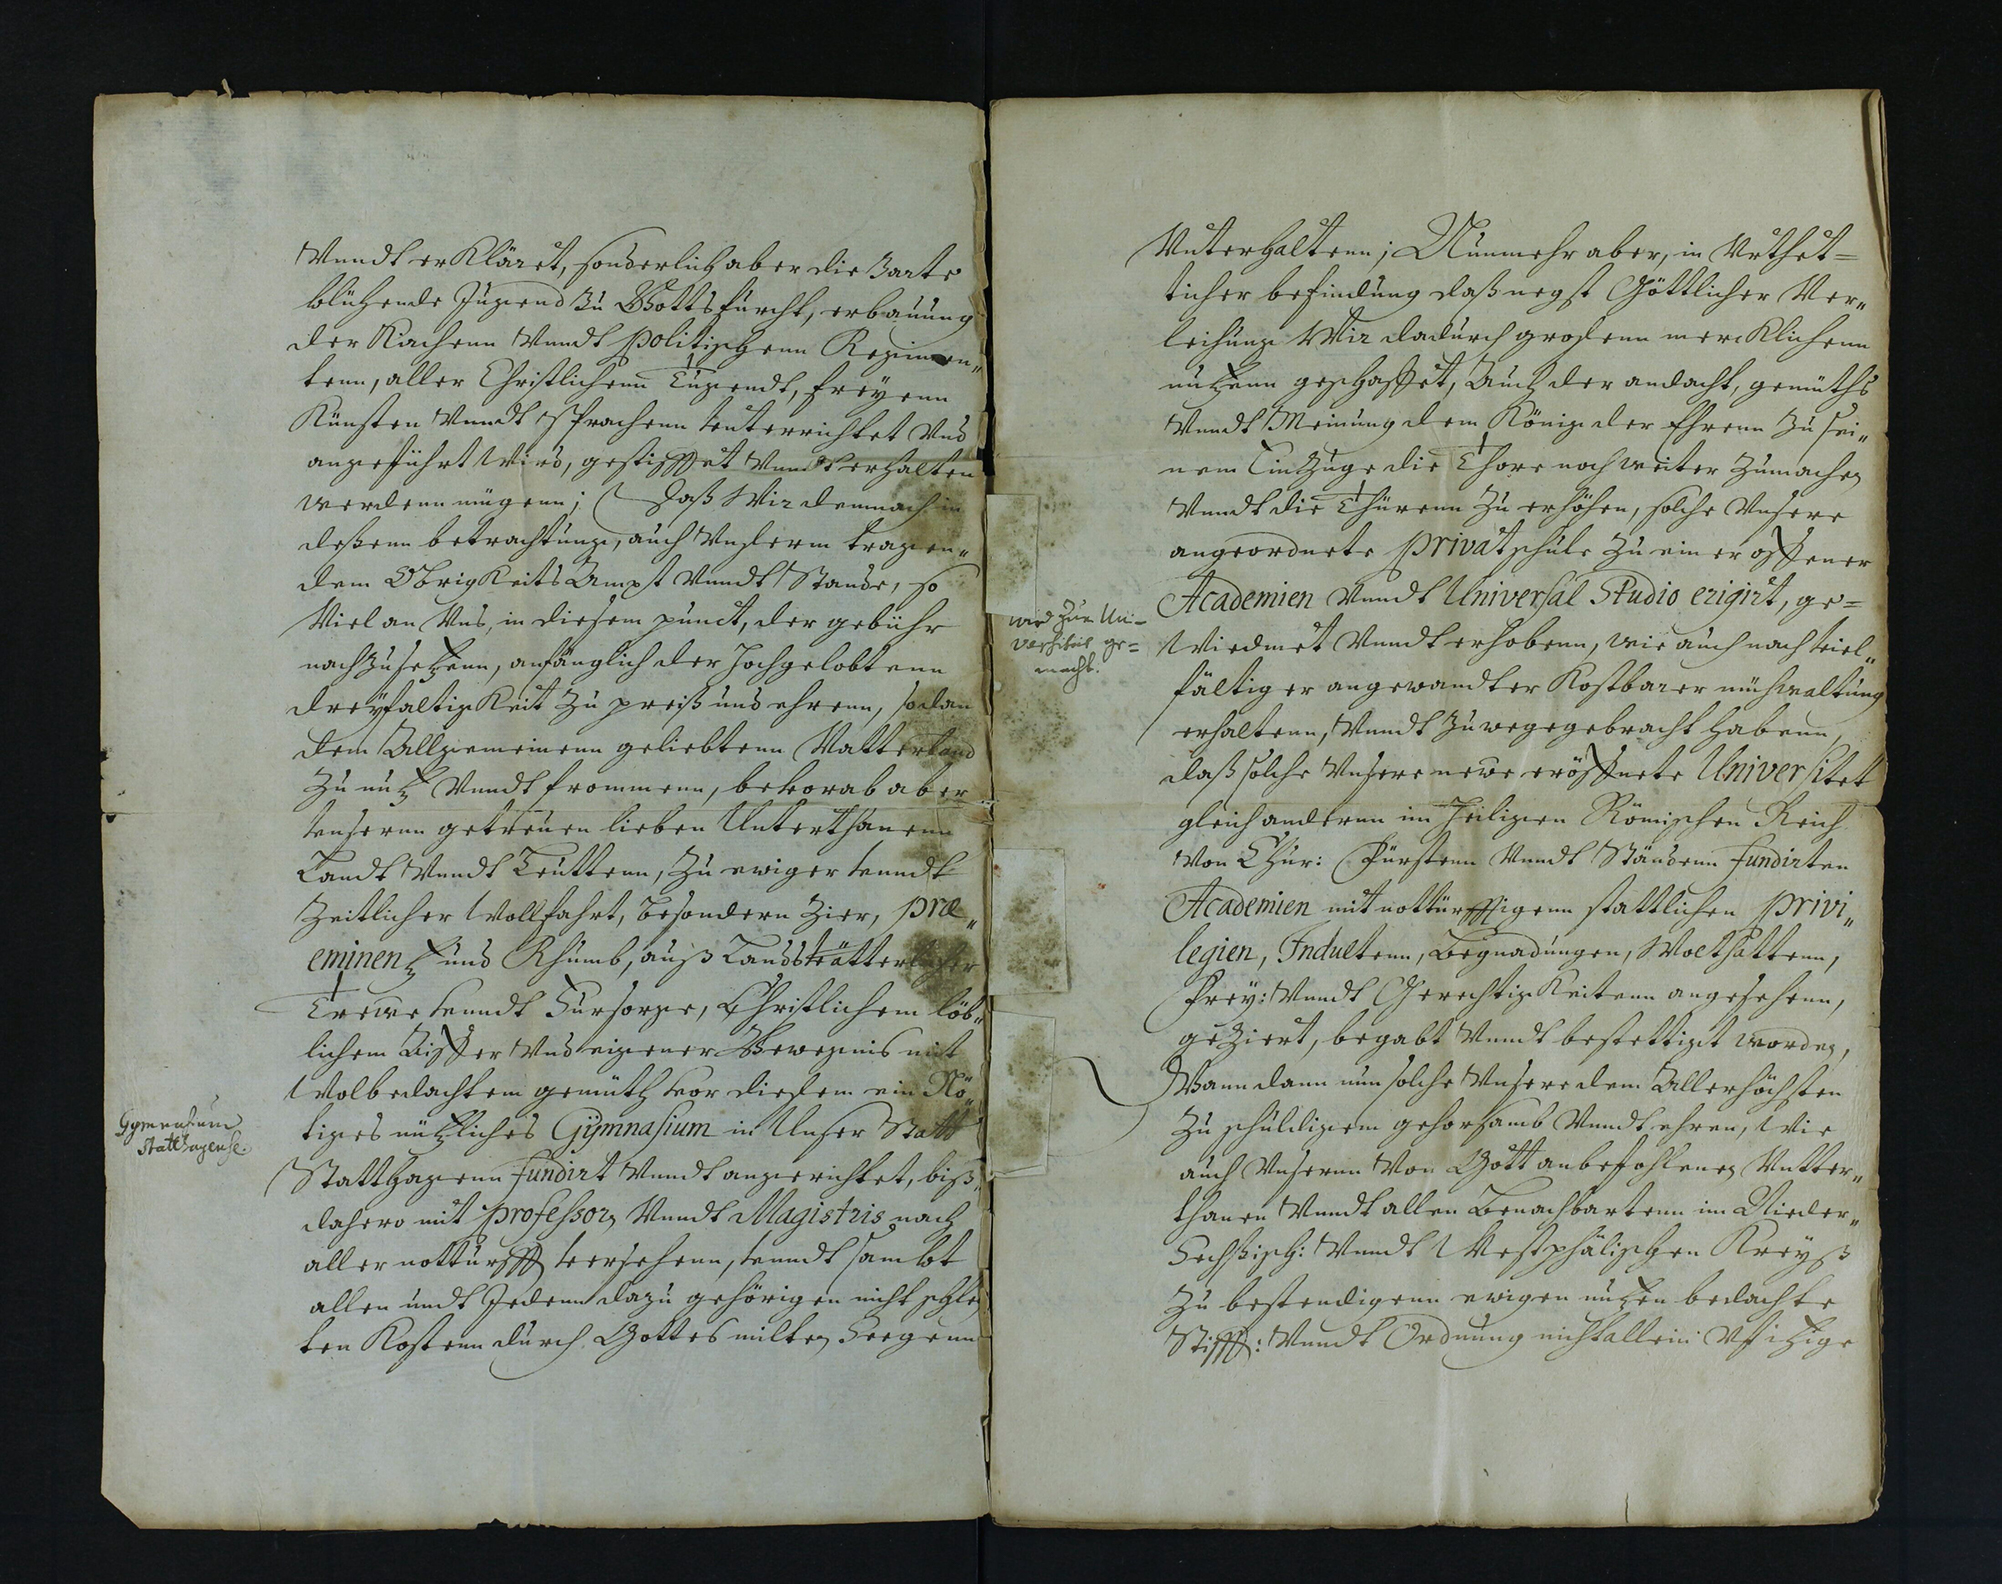 Vnndt erkläret, sonderlich aber die Zarte
blühende Jugend zu Gottsfurcht, erbauung
der Kirchenn Vnndt politischenn Regimen„
tenn, aller Christlichenn Tugendt, freyenn
Künsten Vnndt Sprachenn vnterrichtet Vnd
angeführt wird, gestifftet Vnndt erhalten
werdenn mügenn; Daß Wir demnach in
deßenn betrachtung, auch Vnserm tragen„
dem ObrigKeits Ampt Vnndt Stande, so
Viel an Vns, in diesem punct, der gebühr
nachzusetzenn, anfänglich der Hochgelobtenn
DreyfaltigKeit zu preiß und ehrenn, sodan
dem Allgemeinenn geliebtenn Vatterland
Zu nutz Vnndt frommenn, bevorab aber
vnsernn getreuen lieben Unterthanenn
Landt Vnndt Leuttenn, Zu ewiger vnndt
Zeitlicher Wollfahrt, besondern Zier, præ„
eminentz und Rhumb, auß Landsvätterlicher
Trewe vnndt Vursorge, Christlichem löb„
lichem Eiffer Vnd eigener Bewegnis mit
Wolbedachtem gemüth vor diesem ein Nö„
tiges nützliches Gymnasium in Unser Statt
Statthagenn fundirt Vnndt angerichtet, biß„
dahero mit professorn Vnndt Magistris nach
aller notturfft versehenn, vnndt sambt
allen undt Jedenn dazu gehörigen nicht schlech
ten Kostenn durch Gottes milten Seegenn
Gymnasium
Statthagense.
Vnterhaltenn; Nunmehr aber, in Vrthet=
licher befindung daß negst Göttlicher Ver„
leihung Wir dadurch großenn mercklichenn
nutzenn geschaffet, Auch der andacht, gemüths
Vnndt Meinung dem König der Ehrenn Zu sei„
nem Einzuge die Thore noch weiter Zumachen
Vnndt die Thürenn Zu erhöhen, solche Vnsere
angeordnete privat schule Zu einer offener
Academien Vnndt Universal Studio erigirt, ge=
Wiedmet Vnndt erhobenn, wie auch nach viel„
fältiger angewandter Kostbarer mühwaltung
erhaltenn, Vnndt Zuwegegebracht habenn,
daß solche Vnsere newe eröffnete Universitet
gleich anderen im Heiligen Römischen Reich
Von Chur: Fürstenn Vnndt Ständenn fundirten
Academien mit notturfftigenn stattlichen privi„
legien, Indultenn, Begnadungen, Wolthattenn,
Frey: Vnndt GerechtigKeitenn angesehenn,
geziert, begabt Vnndt bestettigt worden,
Wann dann nun solche Vnsere dem Allerhöchsten
Zu schuldigem gehorsamb Vnndt ehren, Wie
auch Vnsernn Von Gott anbefohlenen Vntter„
thanen Vnndt allen Benachbartenn im Nieder„
Sechßisch: Vnndt Westphälischen Kreyß
Zu bestendigenn ewigen nutzen bedachte
Stifft: Vnndt Ordnung nicht allein Vf itzige
wird zur Uni=
versitaet ge=
macht.